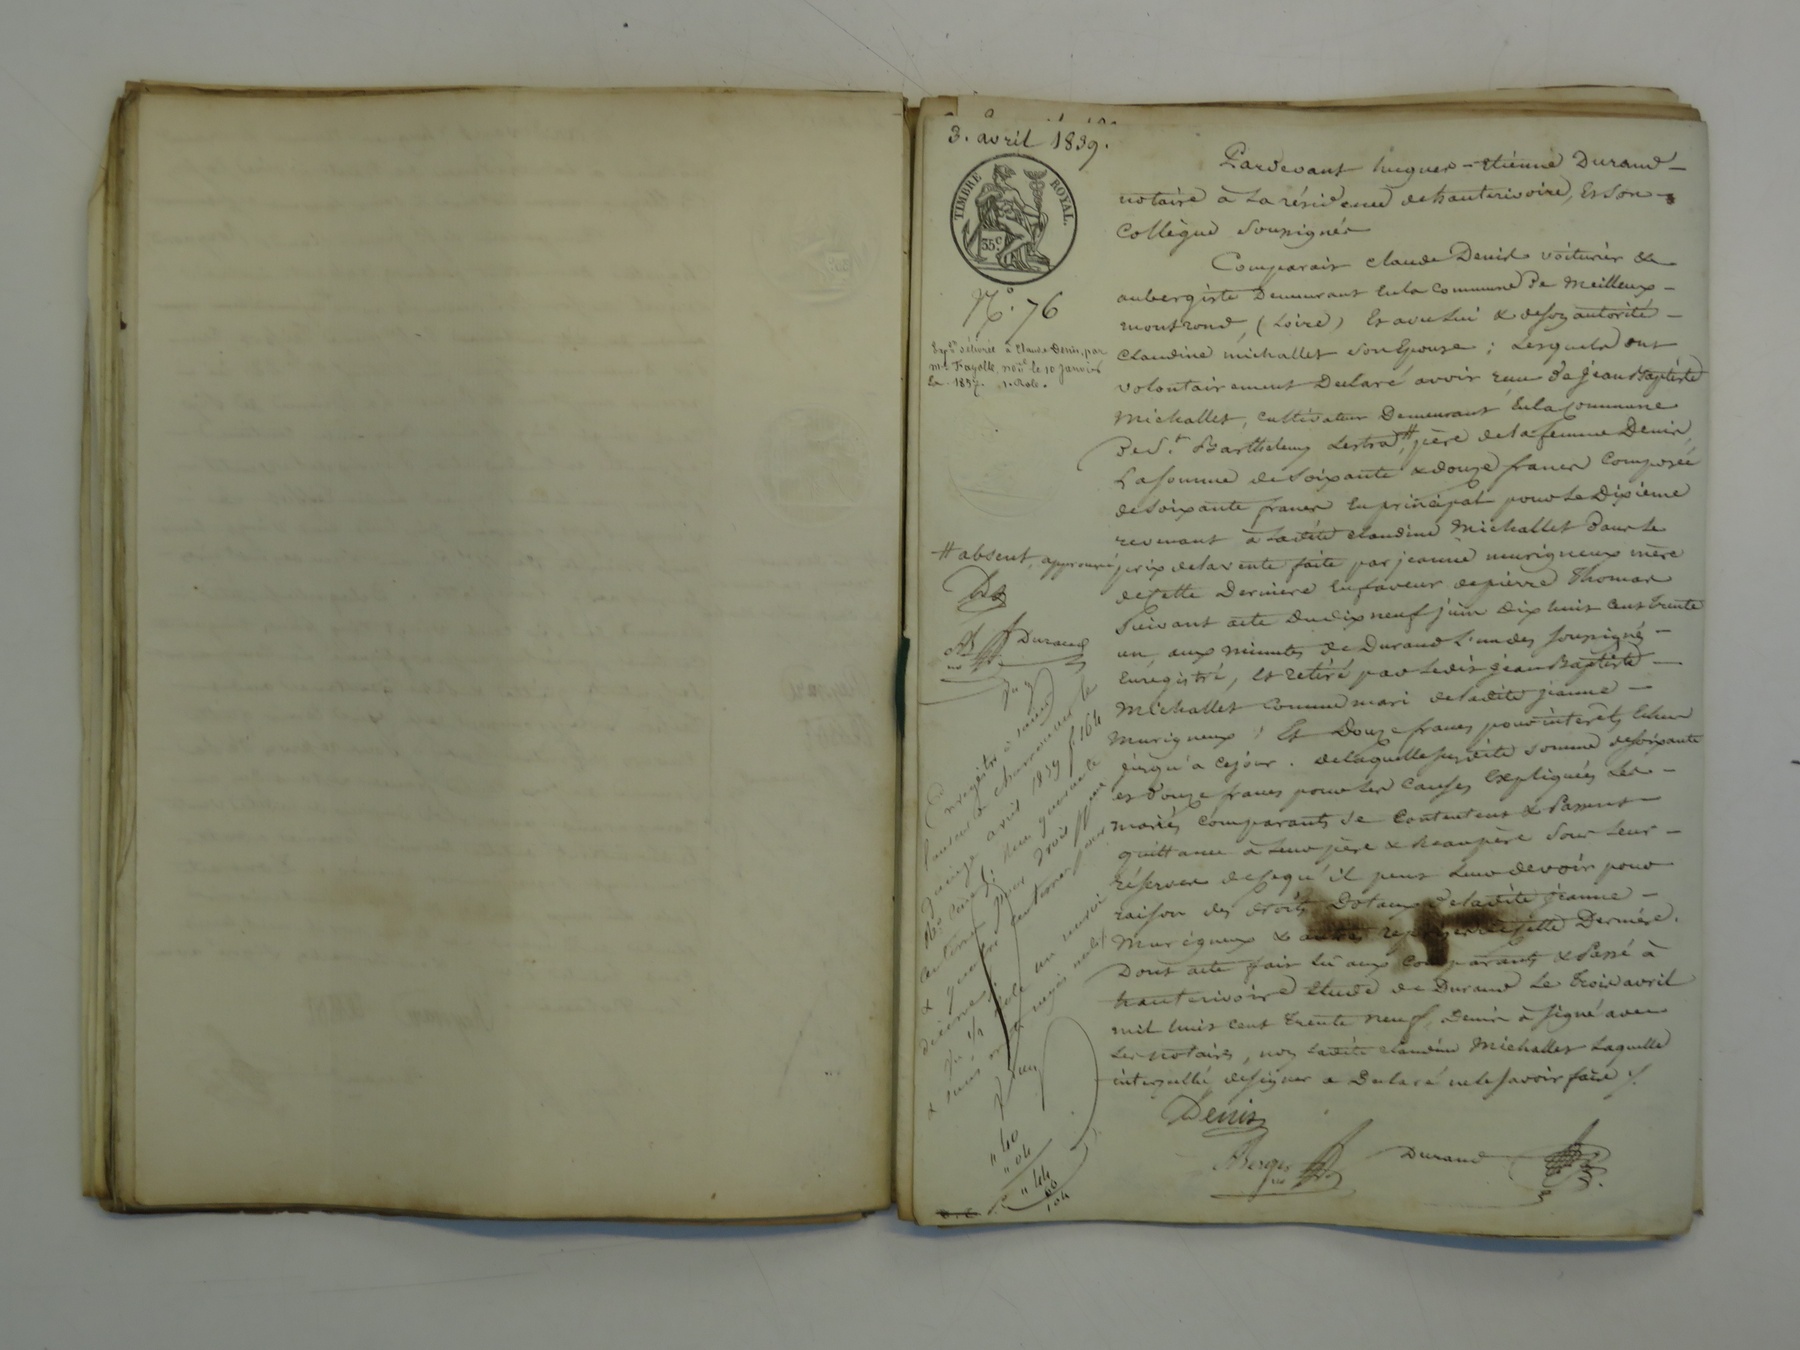 3. avril 1839.
TIMBRE ROYAL.
35c.
N°. 76
Expon délivrée à Claude Denis, par
Me Fayolle, nore le 10 janvier
1857. 1 Role.
# absent, approuvé
Durand
Pardevant hugues-étienne Durand
notaire à la résidence de hauterivoire, et son
Collègue soussignés
Comparait claude Denis voiturier &
aubergiste Demeurant en la commune De Meilleux-
montrond, (Loire) et avec lui & de son autorité
Claudine michallet son Epouse ; Lesquels ont
volontairement Declaré avoir reçu de jean Baptiste
Michallet, cultivateur Demeurant en la Commune
De St. Barthelemy Lestra, # père de la femme Denis,
La somme de soixante & douze francs Composée
de soixante francs en principal pour le Dixieme
revenant à ladite claudine Michallet dans le
prix de la vente faite par jeanne murigneux mère
de cette Derniere en faveur de pierre Thomas
suivant acte du dix neuf juin dix huit cent trente
un, aux minutes de Durand l'un des soussignés
enregistré, et retiré par ledit jean Baptiste
Michallet comme mari de ladite jeanne
Murigneux ; Et Douze francs pour intérêts échus
jusqu'à ce jour. de laquelle susdite somme de soixante
et douze francs pour les causes expliquées les
mariés comparants se contentent & Passent
quittance à leur père & beaupère sous leur
réserve de ce qu'il peut leur devoir pour
raison des droits Dotaux de ladite jeanne
Murigneux & autres reprises de cette Dernière.
Dont acte fait lu aux comparants & Passé à
hauterivoire étude de Durand le trois avril
mil huit cent trente neuf, Denis a signé avec
les notaires, non ladite claudine Michallet laquelle
interpellée de signer a Declaré ne le savoir faire ./.
Denis
Berger
Durand
Enregistré à saint
Laurent de chamousset le
quinze avril 1839 f 164
centimes pour droit
& quatre centimes pour
décime
"40
"04
"44
60
104